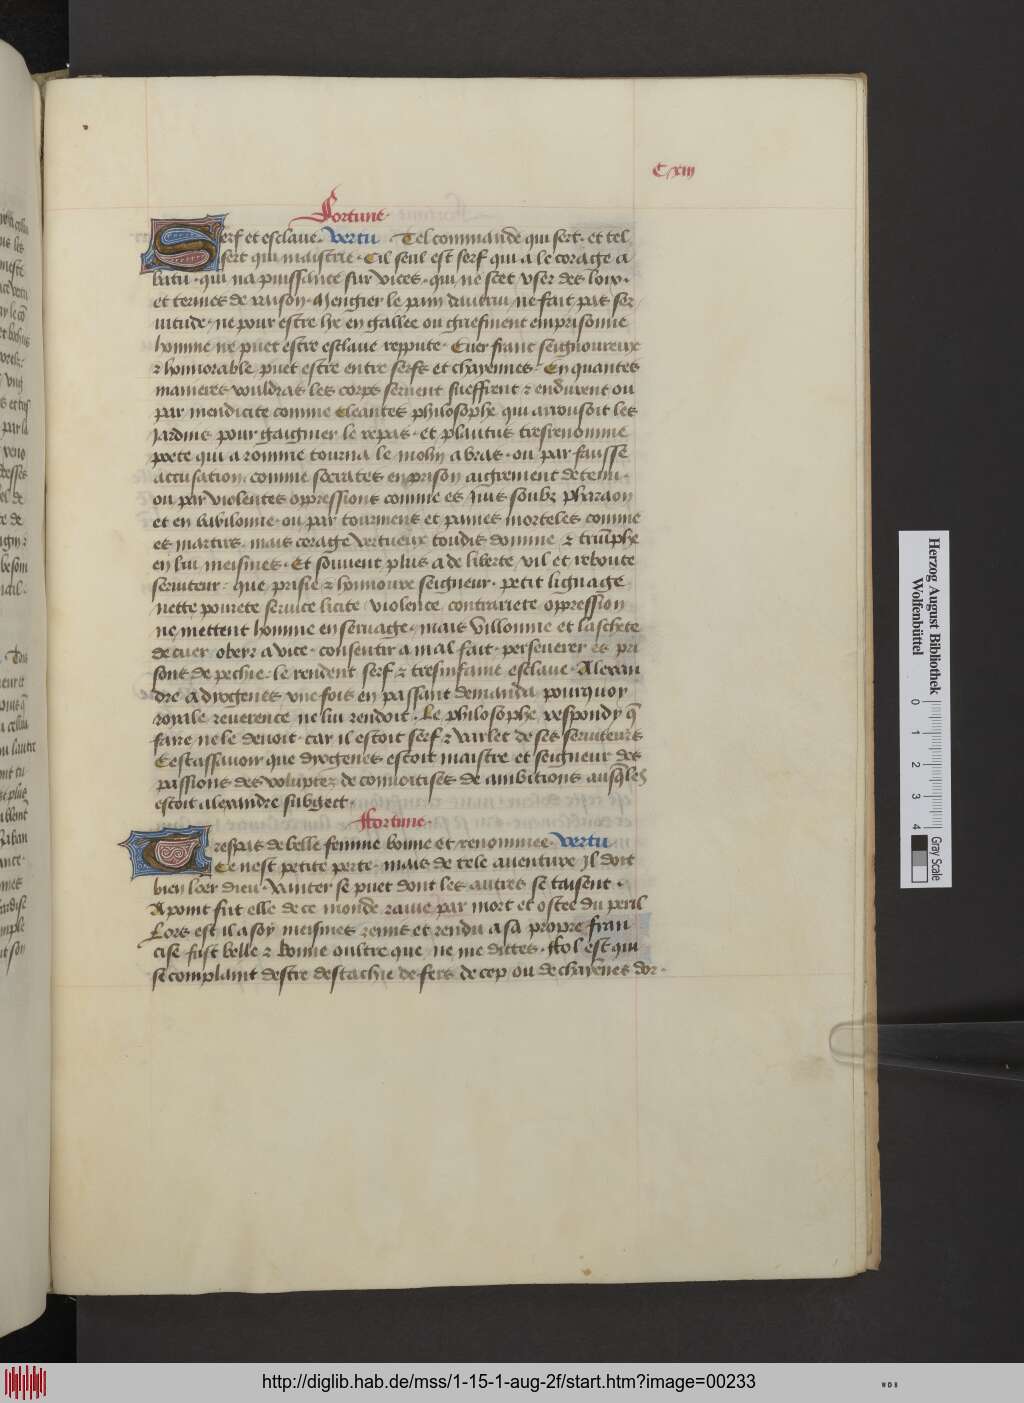 C xiij
Fortune·
Serf et esclaue· Vertu Tel commande qui sert· et tel
sert qui maistrie· Cil seul est serf qui a le corage a
batu· qui na puissance sur vices· qui ne scet vser des loix·
et termes de raison· Mengier le pain dautrui ne fait pas ser
uitude· ne pour estre lye en gallee ou griefment emprisonne
homme ne puet estre esclaue reppute· Cuer franc seignoureux
⁊ honnorable puet estre entre serfs et chayennes· En quantes
manieres vouldras les corps seruent sueffrent ⁊ endurent ou
par mendicite comme Cleantes philosophe qui arrousoit les
Jardins pour gaignier le repas· et plautus tresrenomme
poete qui a romme tourna le molin a bras· ou par fausse
accusation comme socrates en prison aigrement detenu·
ou par violentes oppressions comme es Juis soubz pharaon
et en babilonne· ou par tourmens et paines morteles comme
es martirs· mais corage vertueux toudis domine ⁊ triumphe
en lui meismes· Et souuent plus a de liberte vil et reboute
seruiteur· que prisie ⁊ honnoure seigneur· petit lignage
nette pourete seruice licite violence contrariete oppression
ne mettent homme en seruage· mais villonnie et laschete
de cuer obeyr a vice· consentir a mal fait· perseuerer es pri
sons de pechie· le rendent serf ⁊ tresinfame esclaue· Alexan
dre a dyogenes vne fois en passant demanda pourquoy
royale reuerence ne lui rendoit· Le philosophe respondy q̄
faire ne le deuoit· car il estoit serf ⁊ varlet de ses seruiteurs
Cest assauoir que dyogenes estoit maistre et seigneur des
passions des voluptez de conuoitises de ambitions ausq̄lez
estoit alexandre subgect·
Fortune·
Trespas de belle femme bonne et renommee· Vertu
Ce nest petite perte· mais de tele auenture Jl doit
bien loer dieu· Vanter se puet dont les autres se taisent·
A point fut elle de ce monde rauie par mort et ostee du peril
Lors est il a soy meismes remis et rendu a sa propre fran
cise· fust belle ⁊ bonne oultre que ne me dittes· Fol est qui
se complaint destre destachie de fers de cep ou de chayenes dor·
Herzog August Bibliothek
Wolfenbüttel
0 1 2 3 4
Gray Scale
http://diglib.hab.de/mss/1-15-1-aug-2f/start.htm?image=00233
WDB